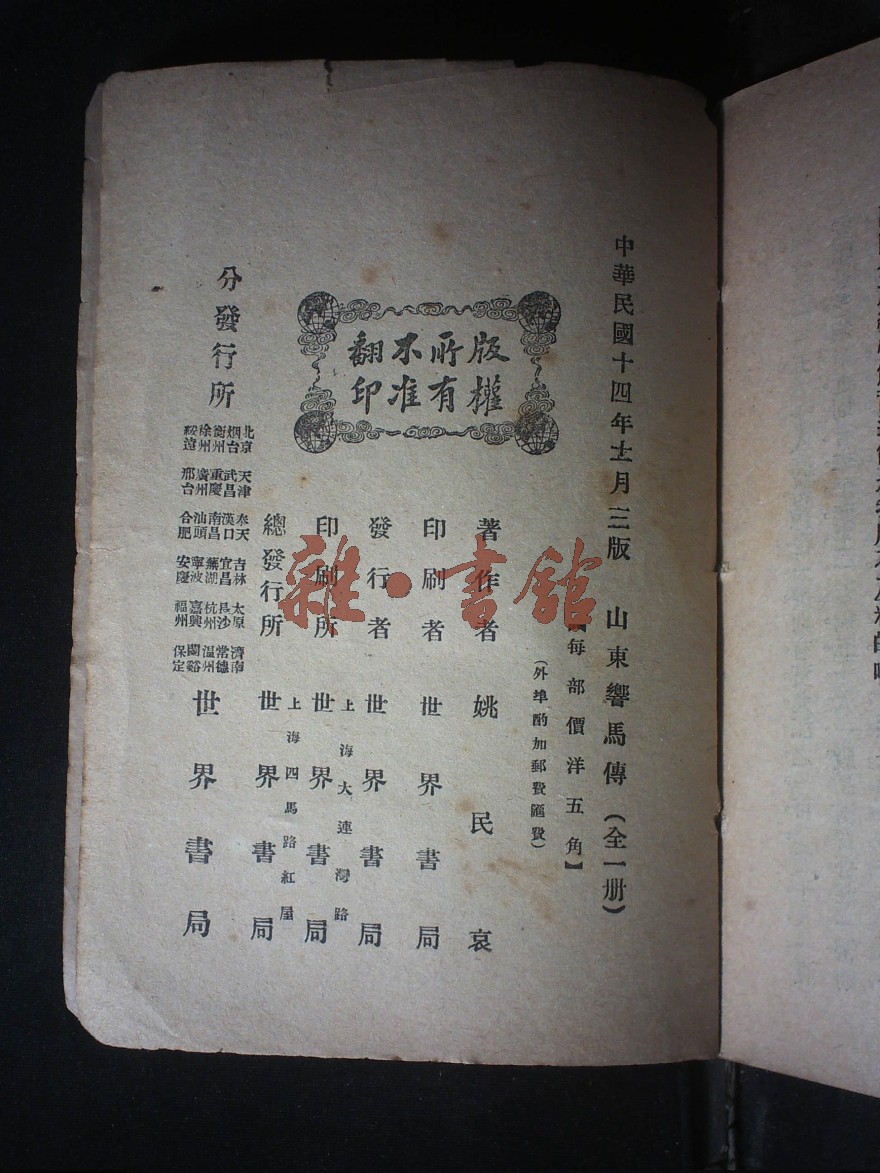 中華民國十四年十二月三版 山東響馬傳（全一册）
【每部價洋五角】
（外埠酌加郵費匯費）
版權
所有
不准
翻印
著作者 姚民哀
印刷者 世界書局
發行者 世界書局
上海大連灣路
印刷所 世界書局
上海四馬路紅屋
總發行所 世界書局
分發行所
北京 天津 奉天 吉林 太原 濟南
烟台 武昌 漢口 宜昌 長沙 常德
衡州 重慶 南昌 蕪湖 杭州 溫州
徐州 廣州 汕頭 寧波 嘉興 蘭谿
綏遠 邢台 合肥 安慶 福州 保定
世界書局
雜·書館